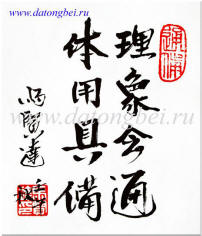 www.datongbei.ru
理象会通
体用具備
馬賢達
www.datongbei.ru